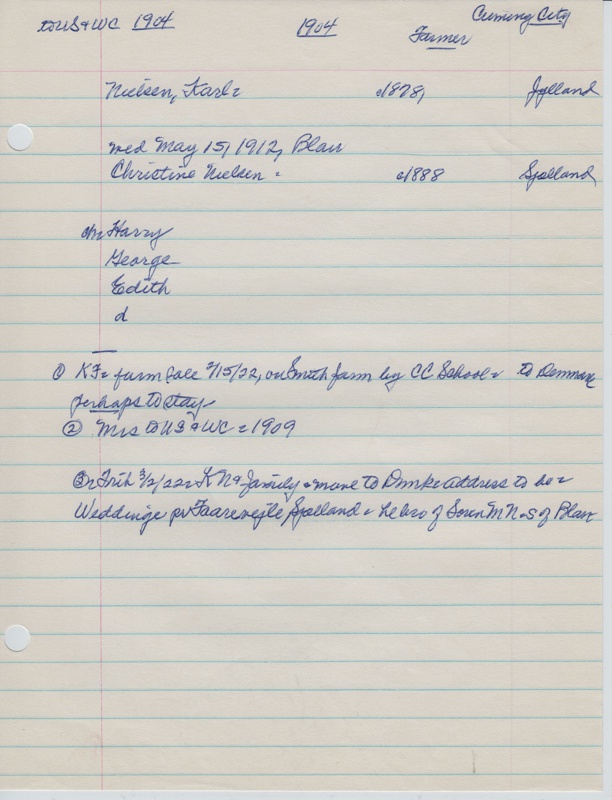 to US & WC 1904 1904 Cuming City
Farmer
Nielsen, Karl = c1878, Jylland
wed May 15, 1912, Blair
Christine Nielsen = c1888 Sjelland
ch= Harry
George
Edith
d
① KF= farm sale 2/15/22, on Smith farm by CC School = to Denmark
perhaps to stay
② Mrs to US & WC = 1909
③ 3/2/22 = KN & family = move to Dmk = address to be =
Weddinge pr Faarevejle Sjelland = he bro of Soren M N. s of Blair